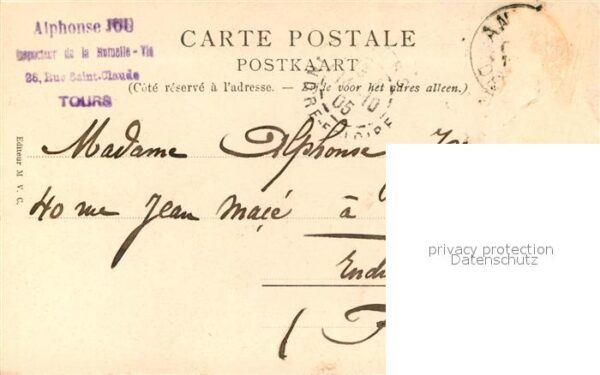 Alphonse JOU
Inspecteur de la Mutuelle-Vie
26, Rue Saint-Claude
TOURS
CARTE POSTALE
POSTKAART
(Côté réservé à l'adresse. — Zijde voor het adres alleen.)
Madame Alphonse
40 rue Jean Macé à
Indr
(F
Editeur M. V. C.
05
privacy protection
Datenschutz